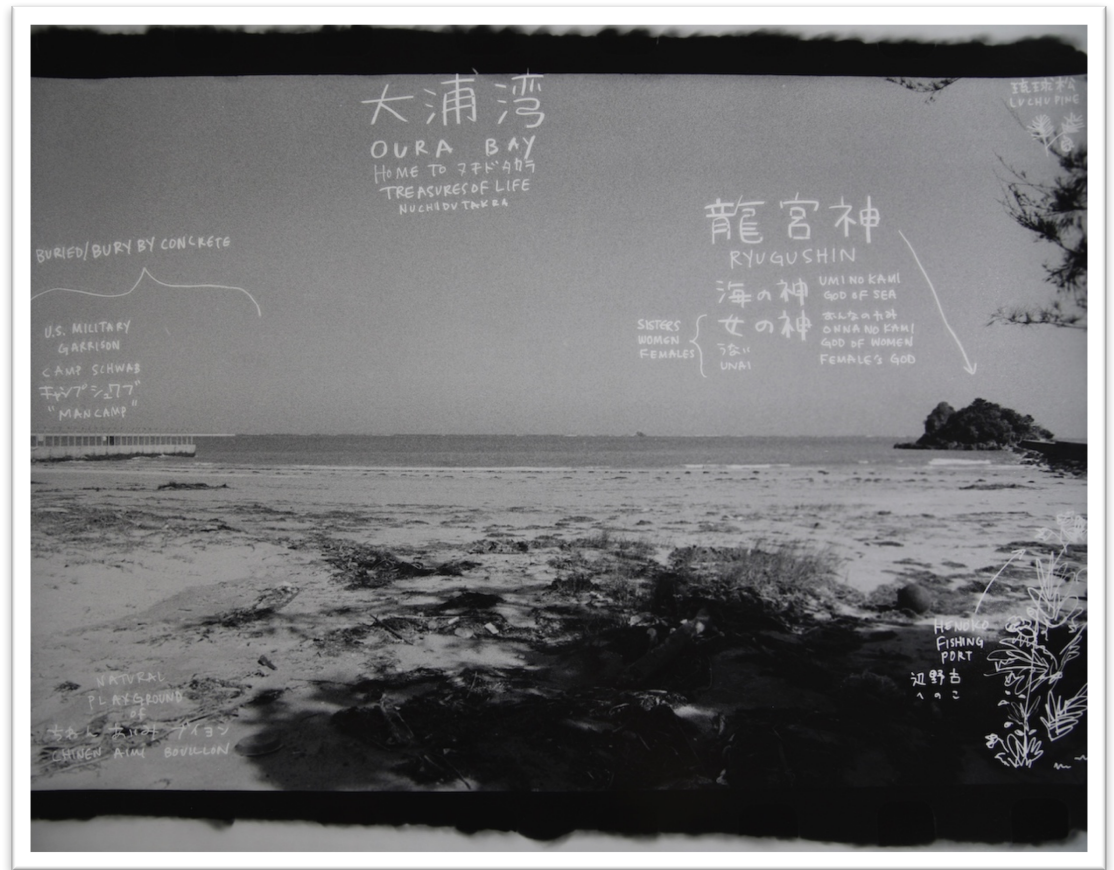 大浦湾
OURA BAY
HOME TO ヌチドタカラ
TREASURES OF LIFE
NUCHIDUTAKRA
琉球松
LUCHU PINE
BURIED/BURY BY CONCRETE
U.S. MILITARY
GARRISON
CAMP SCHWAB
キャンプシュワブ
"MANCAMP"
龍宮神
RYUGUSHIN
海の神 UMI NO KAMI
GOD OF SEA
女の神 おんなのかみ
ONNA NO KAMI
GOD OF WOMEN
FEMALE'S GOD
うない
UNAI
SISTERS
WOMEN
FEMALES
HENOKO
FISHING
PORT
辺野古
へのこ
NATURAL
PLAYGROUND
OF
ちねん あいみ ブイヨン
CHINEN AIMI BOUILLON